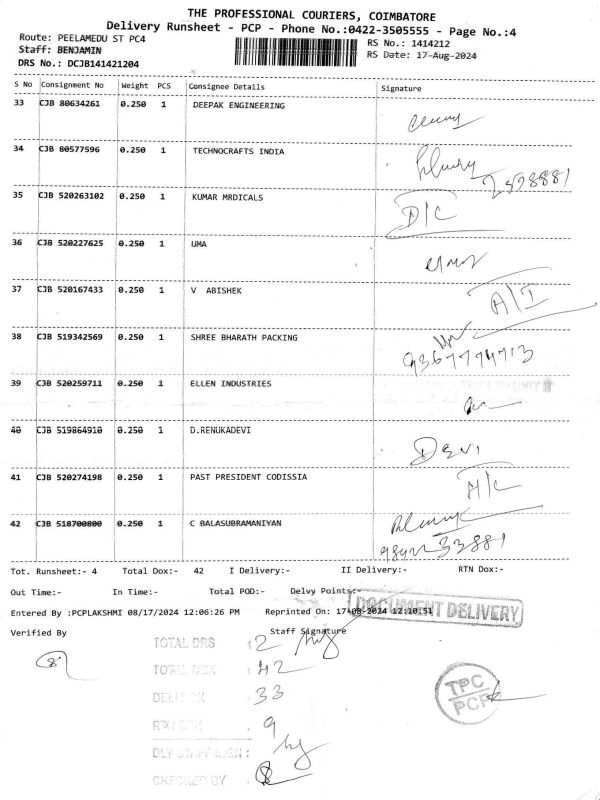 THE PROFESSIONAL COURIERS, COIMBATORE
Delivery Runsheet - PCP - Phone No.:0422-3505555 - Page No.:4
Route: PEELAMEDU ST PC4 RS No.: 1414212
Staff: BENJAMIN RS Date: 17-Aug-2024
DRS No.: DCJB141421204
S No Consignment No Weight PCS Consignee Details Signature
33 CJB 80634261 0.250 1 DEEPAK ENGINEERING
34 CJB 80577596 0.250 1 TECHNOCRAFTS INDIA
35 CJB 520263102 0.250 1 KUMAR MRDICALS D/C
36 CJB 520227625 0.250 1 UMA
37 CJB 520167433 0.250 1 V ABISHEK A/I
38 CJB 519342569 0.250 1 SHREE BHARATH PACKING
39 CJB 520259711 0.250 1 ELLEN INDUSTRIES
40 CJB 519864910 0.250 1 D.RENUKADEVI Devi
41 CJB 520274198 0.250 1 PAST PRESIDENT CODISSIA A/C
42 CJB 518700800 0.250 1 C BALASUBRAMANIYAN
Tot. Runsheet:- 4 Total Dox:- 42 I Delivery:- II Delivery:- RTN Dox:-
Out Time:- In Time:- Total POD:- Delvy Points:-
DOCUMENT DELIVERY
Entered By :PCPLAKSHMI 08/17/2024 12:06:26 PM Reprinted On: 17-08-2024 12:10:51
Verified By Staff Signature
TOTAL DRS : 2
TOTAL DOX : 42
33
9
DLY STAFF SIGN :
CHECKED BY
TPC
PCP